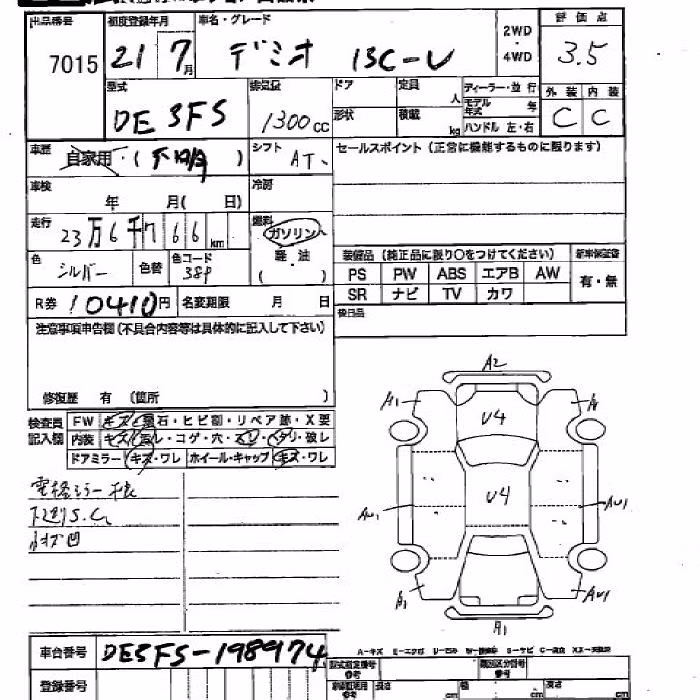 出品番号 初度登録年月 車名・グレード 2WD・4WD 評価点
7015 21 7月 デミオ 13C-V 3.5
型式 排気量 ドア 定員 人 ディーラー・並行 外装 内装
DE3FS 1300cc 形状 積載 kg モデル年式 年 C C
ハンドル 左・右
車歴 自家用・( ) シフト AT セールスポイント(正常に機能するものに限ります)
車検 年 月( 日) 冷房
走行 23万6千766km 燃料 ガソリン
軽・油
( )
装備品(純正品に限り○をつけてください) 新車保証書
色 シルバー 色替 色コード 38P
PS PW ABS エアB AW 有・無
SR ナビ TV カワ
R券 10410円 名変期限 月 日
後日品
注意事項申告欄(不具合内容等は具体的に記入して下さい)
修復歴 有 (箇所 )
検査員記入欄 FW キズ・飛石・ヒビ割・リペア跡・X要
内装 キズ・ヨレ・コゲ・穴・スレ・ヘタリ・破レ
ドアミラー キズ・ワレ ホイール・キャップ キズ・ワレ
電格ミラー
下廻りS.C
小キズ凹
A2
A1 A
U4
U4
AU1 AU1
A1 AU1
A1
車台番号 DE3FS-198974
登録番号
型式指定番号 類別区分番号
長さ cm 幅 cm 高さ cm